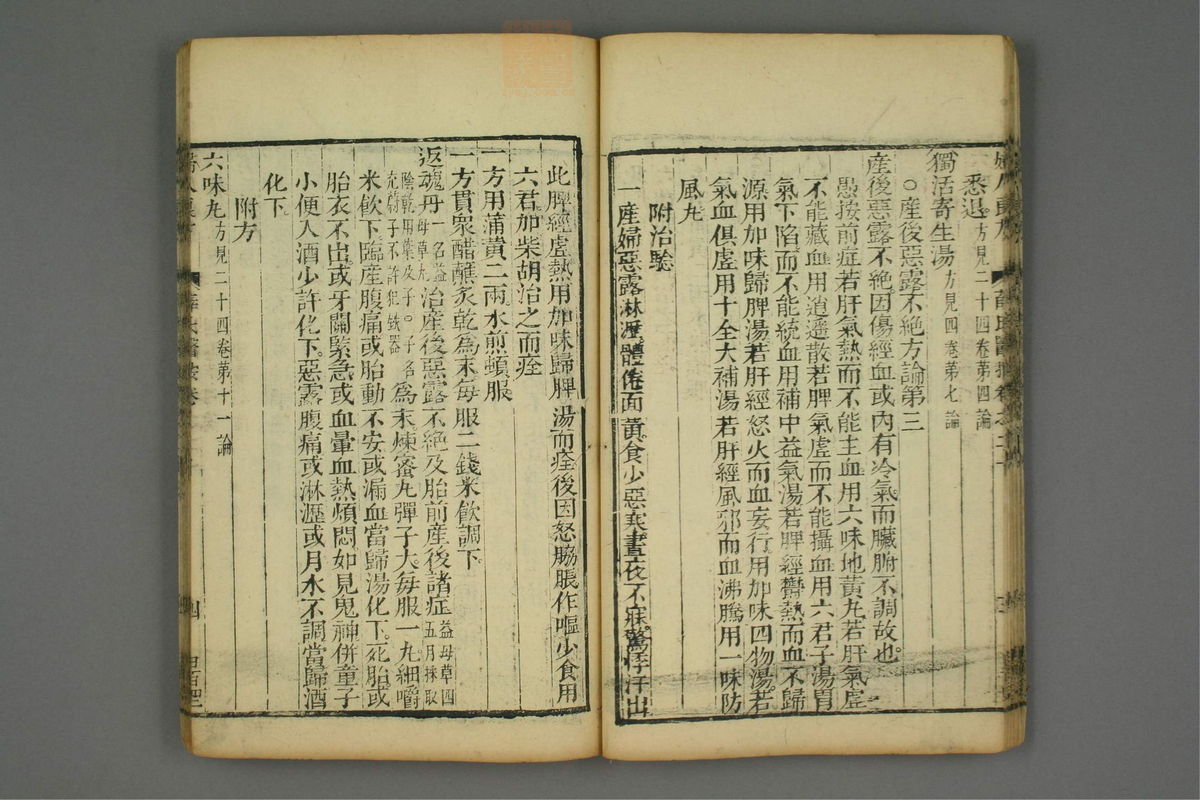 悉退方見二十四卷第四論
獨活寄生湯方見四卷第七論
○產後惡露不絕方論第三
產後惡露不絕因傷經血或內有冷氣而臟腑不調故也
愚按前症若肝氣熱而不能主血用六味地黃丸若肝氣虛
不能藏血用逍遙散若脾氣虛而不能攝血用六君子湯胃
氣下陷而不能統血用補中益氣湯若脾經鬱熱而血不歸
源用加味歸脾湯若肝經怒火而血妄行用加味四物湯若
氣血俱虛用十全大補湯若肝經風邪而血沸騰用一味防
風丸
附治驗
一產婦惡露淋瀝體倦面黃食少惡寒晝夜不寐驚悸汗出
此脾經虛熱用加味歸脾湯而痊後因怒脇脹作嘔少食用
六君加柴胡治之而痊
一方用蒲黃二兩水煎頓服
一方貫衆醋蘸炙乾為末每服二錢米飲調下
返魂丹一名益母草丸治產後惡露不絕及胎前產後諸症益母草四五月採取
陰乾用葉及子。子名茺蔚子不許犯鐵器為末煉蜜丸彈子大每服一丸細嚼
米飲下臨產腹痛或胎動不安或漏血當歸湯化下死胎或
胎衣不出或牙關緊急或血暈血熱煩悶如見鬼神併童子
小便入酒少許化下惡露腹痛或淋瀝或月水不調當歸酒
化下
附方
六味丸方見二十四卷第十一論